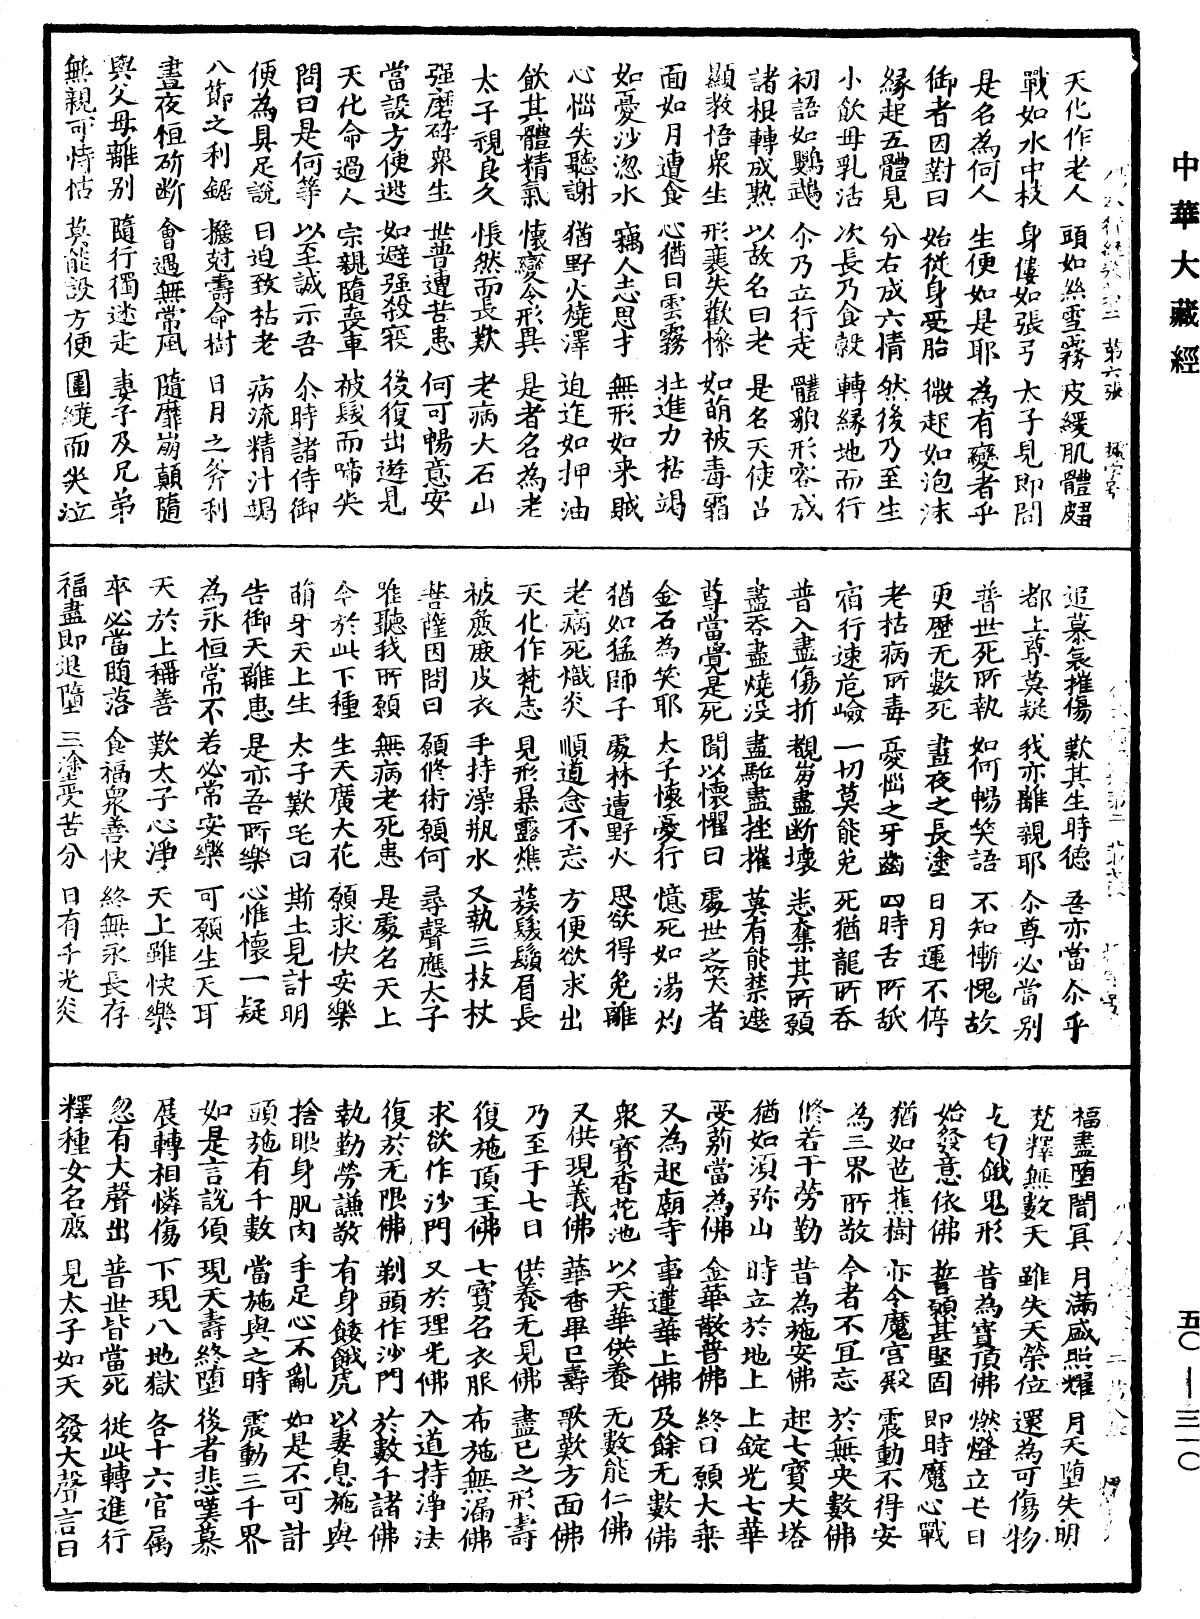 中華大藏經
第六張
天化作老人 頭如絲雪霧 皮緩肌體皺
戰如水中枝 身僂如張弓 太子見即問
是名為何人 生便如是耶 為有變者乎
御者因對曰 始從身受胎 微起如泡沫
緣起五體見 分右成六情 然後乃至生
小飲母乳活 次長乃食穀 轉緣地而行
初語如鸚鵡 尒乃立行走 體貌形容成
諸根轉成熟 以故名曰老 是名天使召
顯教悟衆生 形衰失歡慘 如萌被毒霜
面如月遭食 心猶日雲霧 壯進力枯竭
如憂沙忽水 竊人志思才 無形如来賊
心惱失聽謝 猶野火燒澤 迫迮如押油
飲其體精氣 懷變令形異 是者名為老
太子視良久 悵然而長歎 老病大石山
强磨碎衆生 世普遭苦患 何可暢意安
當設方便逃 如避强殺寇 後復出遊見
天化命過人 宗親隨喪車 被髮而啼哭
問曰是何等 以至誠示吾 尒時諸侍御
便為具足說 日迫致枯老 病流精汁竭
八節之利鋸 攬尅壽命樹 日月之斧利
晝夜恒斫斷 會遇無常風 隨靡崩顛隨
與父母離別 隨行獨迷走 妻子及兄弟
無親可恃怙 莫能設方便 圍繞而哭泣
追慕哀摧傷 歎其生時德 吾亦當尒乎
都上尊莫疑 我亦離親耶 尒尊必當別
普世死所執 如何暢笑語 不知慚愧故
更歷无數死 晝夜之長塗 日月運不停
老枯病所毒 憂惱之牙齒 四時舌所舐
宿行速危嶮 一切莫能免 死猶龍所吞
普入盡傷折 觀芻盡斷壞 悉奪其所願
盡吞盡燒没 盡駈盡挫摧 莫有能禁遮
尊當覺是死 聞以懷懼曰 處世之笑者
金石為笑耶 太子懷憂行 憶死如湯灼
猶如猛師子 處林遭野火 思欲得免離
老病死熾炎 順道念不忘 方便欲求出
天化作梵志 見形暴露燋 蔟髮鬚眉長
被麁鹿皮衣 手持澡瓶水 又執三枝杖
菩薩因問曰 願修術願何 尋聲應太子
唯聽我所願 無病老死患 是處名天上
今於此下種 生天廣大花 願求快安樂
萌牙天上生 太子歎咤曰 斯土見計明
告御天雖患 是亦吾所樂 心惟懷一疑
為永恒常不 若必常安樂 可願生天耳
天於上稱善 歎太子心淨 天上雖快樂
卒必當隨落 食福衆善快 終無永長存
福盡即退墮 三塗受苦分 日有千光炎
福盡墮闇冥 月滿盛照耀 月天墮失明
梵釋無數天 雖失天榮位 還為可傷物
乞匂餓鬼形 昔為寶頂佛 燃燈立七日
始發意依佛 誓願甚堅固 即時魔心戰
猶如芭蕉樹 亦令魔宮殿 震動不得安
為三界所敬 今者不宜忘 於無央數佛
修若干勞勤 昔為施安佛 起七寶大塔
猶如須弥山 時立於地上 上錠光七華
受莂當為佛 金華散普佛 終日願大乘
又為起廟寺 事蓮華上佛 及餘无數佛
衆寶香花池 以天華供養 无數能仁佛
又供現義佛 華香畢已壽 歌歎方面佛
乃至于七日 供養无見佛 盡已之形壽
復施頂王佛 七寶名衣服 布施無漏佛
求欲作沙門 又於理光佛 入道持淨法
復於无限佛 剃頭作沙門 於數千諸佛
執勤勞謙敬 有身餧餓虎 以妻息施與
捨眼身肌肉 手足心不亂 如是不可計
頭施有千數 當施與之時 震動三千界
如是言說頃 現天壽終墮 後者悲嘆慕
展轉相憐傷 下現八地獄 各十六官属
忽有大聲出 普世皆當死 從此轉進行
釋種女名應 見太子如天 發大聲言曰
五〇—三一〇